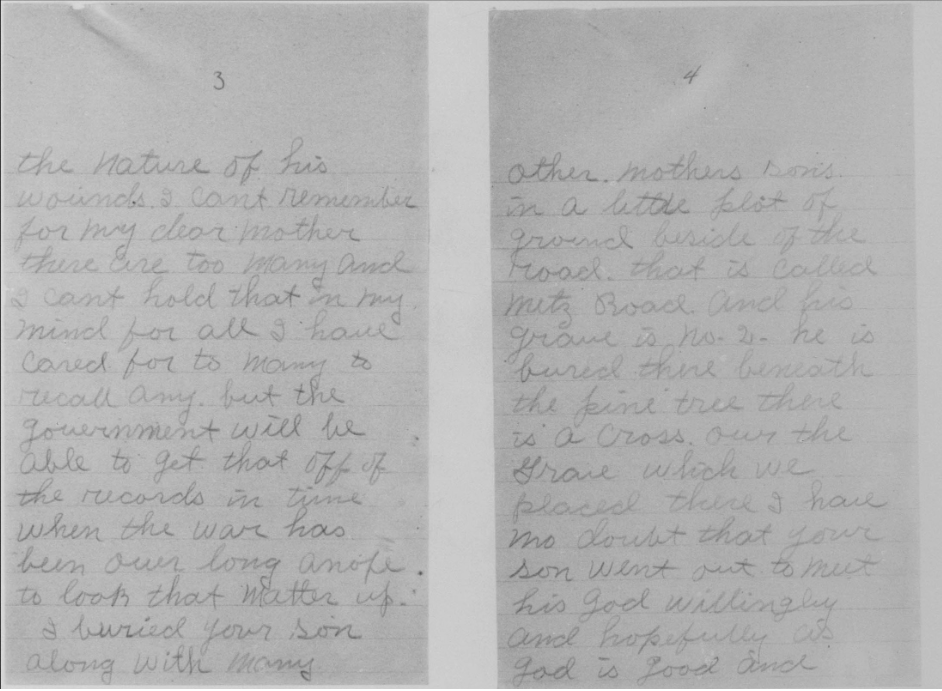 3
the nature of his
wounds. I cant remember
for my dear mother
there are too many and
I cant hold that in my
mind for all I have
cared for to many to
recall any. but the
government will be
able to get that off of
the records in time
when the war has
been over long anofe
to look that matter up.
I buried your son
along with many
4
other. mothers sons.
in a little plot of
ground beside of the
road. that is called
Metz Road. And his
grave is no. 2. he is
bured there beneath
the pine tree there
is a Cross. over the
Grave which we
placed there I have
no doubt that your
son went out to meet
his God willingly
and hopefully as
God is good and